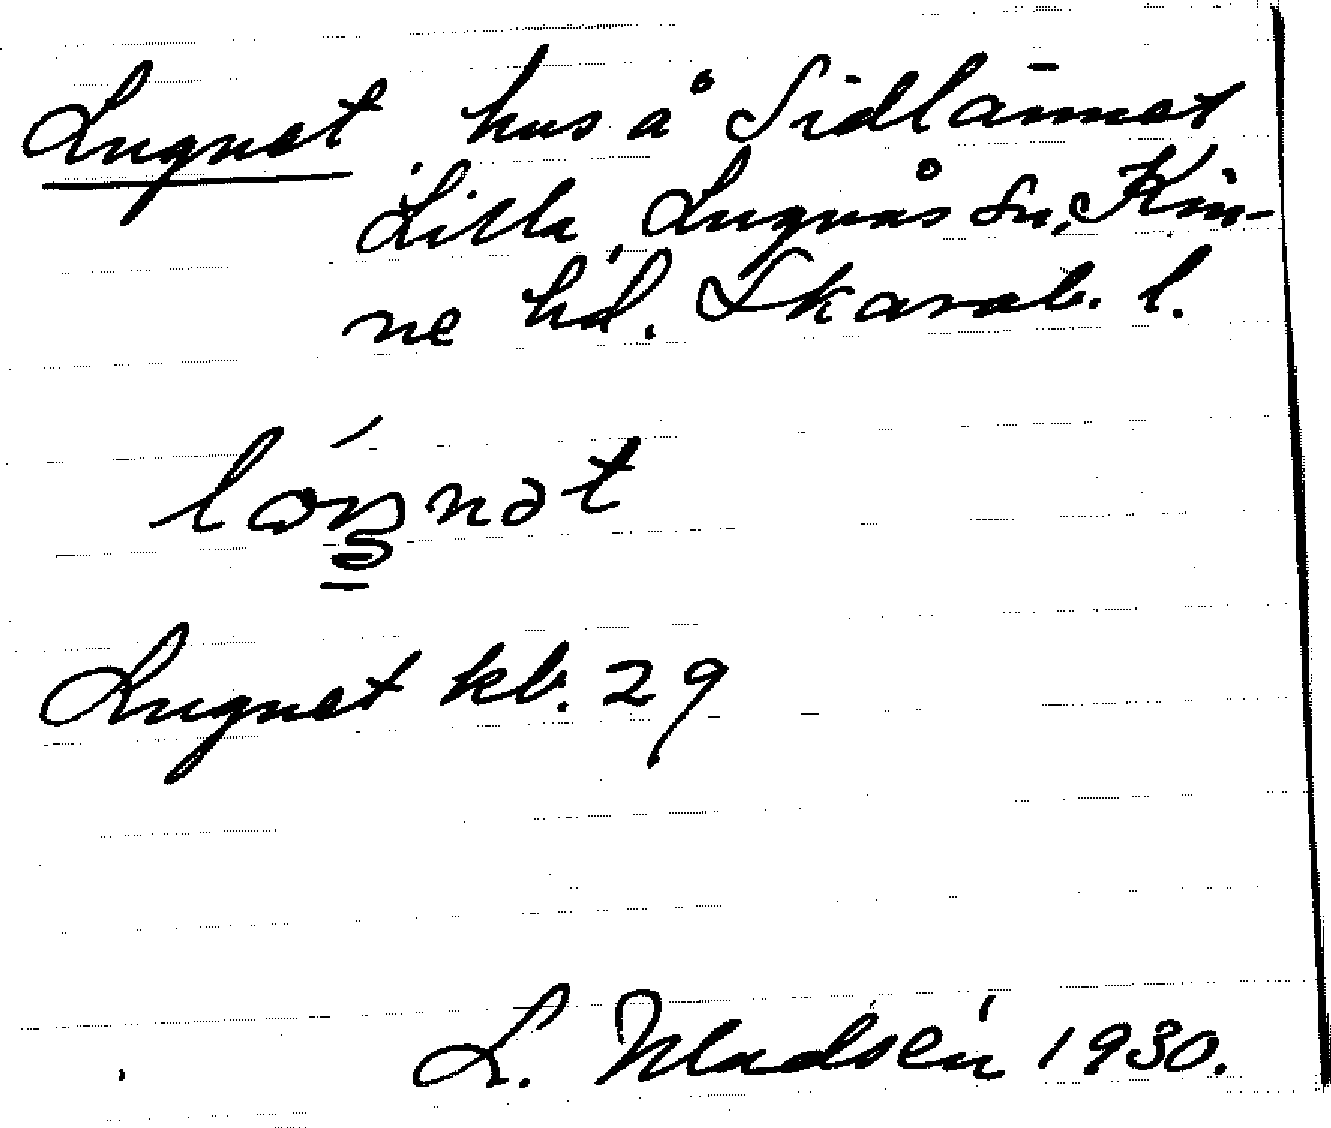 Lugnet, hus å Sidlämnet
Lilla, Lugnås sn, Kin-
ne hd. Skarab. l.
lóŋnət
Lugnet kb. 29
L. Madsén 1930.